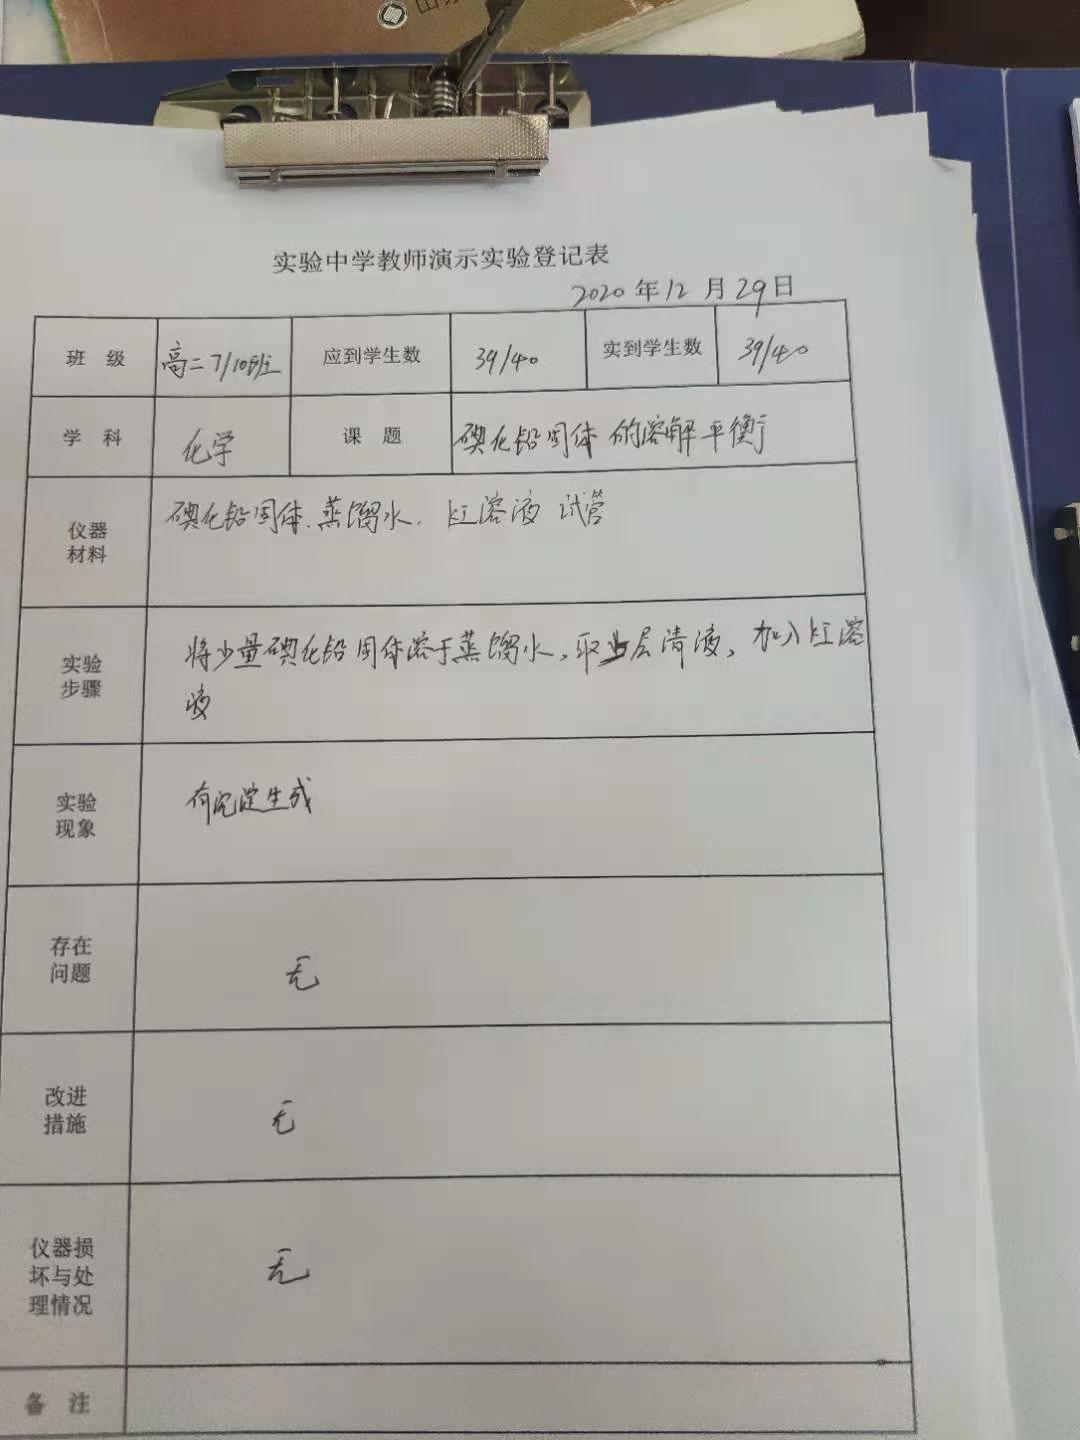 山
实验中学教师演示实验登记表
2020年12月29日
班 级 高二7/10班 应到学生数 39/40 实到学生数 39/40
学 科 化学 课 题 碘化铅固体的溶解平衡
仪器
材料
碘化铅固体.蒸馏水. KI溶液 试管
实验
步骤
将少量碘化铅固体溶于蒸馏水,取上层清液,加入KI溶
液
实验
现象
有沉淀生成
存在
问题
无
改进
措施
无
仪器损
坏与处
理情况
无
备 注